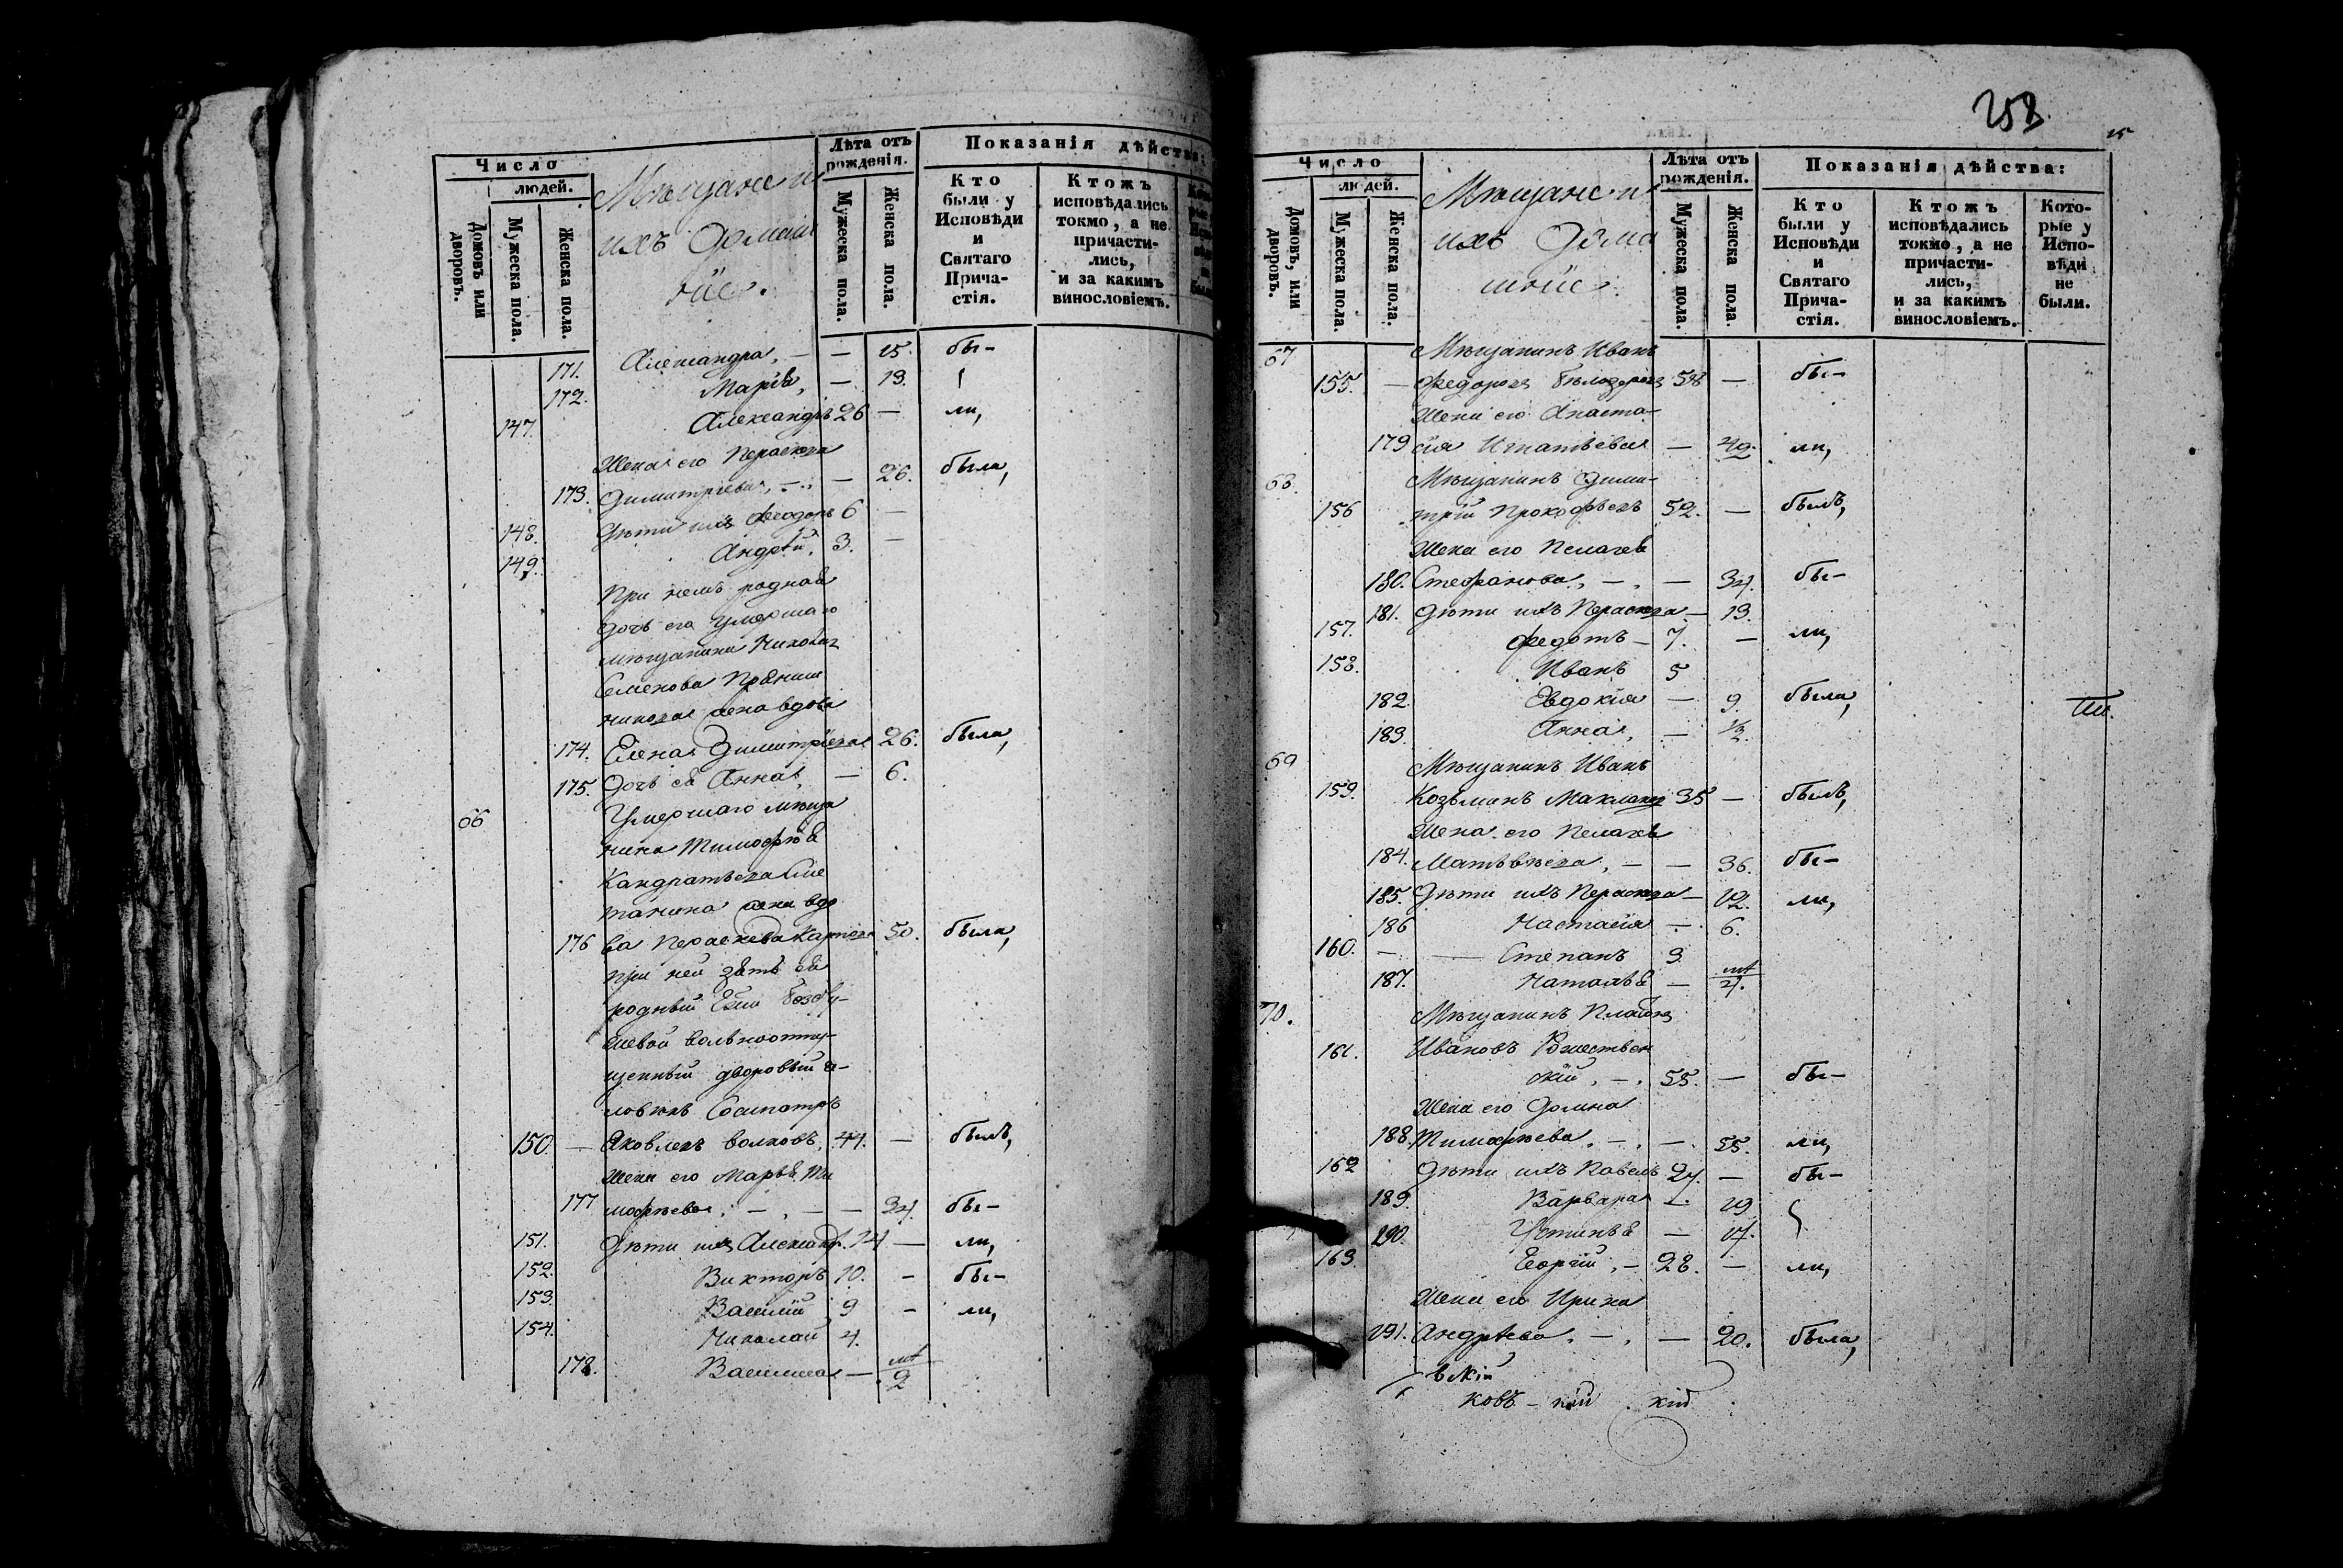 Число
людей.
Домовъ или дворовъ.
Мужеска пола.
Женска пола.
Мѣщане и
ихъ домаш
ніе.
Лѣта отъ рожденія.
Мужеска пола.
Женска пола.
Показанія дѣйства:
Кто были у Исповѣди и Святаго Прича-стія.
Ктожъ исповѣдались токмо, а не причасти-лись, и за какимъ винословіемъ.
171. Александра, — — 15. бы-
172. Марія, — 13.
147. Александръ 26 — ли,
Жена его Параскева
173. Димитріева, — — 26. была,
148. Дѣти ихъ Феодоръ 6 —
149. Андрей, 3. —
При немъ родная
дочь его умершаго
мѣщанина Николая
Семенова
жена вдова
174. Елена Димитріева 26. была,
175. Дочь ея Анна, — 6.
66 Умершаго мѣща
нина Тимофея
Кандратьева Сме
танина жена вдо
176 ва Параскева Карпова 50. была,
при ней зять ея
родный
вольноотпу-
щенный дворовый че-
ловѣкъ Сосипатръ
150. — Яковлевъ Волковъ, 41. — былъ,
Жена его Марья Ти
177 мофѣева, — , — — 34. бы-
151. Дѣти ихъ Александръ 14 — ли,
152. Викторъ 10. — бы-
153. Василій 9 — ли,
154. Николай 4.
178. Василиса — 2
253.
15
Число
людей.
Домовъ, или дворовъ.
Мужеска пола.
Женска пола.
Мѣщане и
ихъ дома
шніе.
Лѣта отъ рожденія.
Мужеска пола.
Женска пола.
Показанія дѣйства:
Кто были у Исповѣди и Святаго Прича-стія.
Ктожъ исповѣдались токмо, а не причасти-лись, и за какимъ винословіемъ.
Кото-рые у Испо-вѣди не были.
67 Мѣщанинъ Иванъ
155. — Федоровъ Бѣлозеровъ 58 — бы-
Жена его Анаста-
179 сія Игнатьева — 49. ли,
68. Мѣщанинъ Дими-
156 трій Прокофьевъ 52. — былъ,
Жена его Пелагея
180. Стефанова, — , — 34. бы-
181. Дѣти ихъ Параскева — 13.
157. Федотъ — 7. — ли,
158. Иванъ 5
182. Евдокія — 9. была,
183. Анна, — ½.
69 Мѣщанинъ Иванъ
159. Козьминъ Маклаковъ 35 — былъ,
Жена его Пелагея
184. Матвѣева, — — 36. бы-
185. Дѣти ихъ Параскева — 12. ли,
186 Настасія — 6.
160. — — Степанъ 3
187. Наталья —
70. Мѣщанинъ Платонъ
161. Ивановъ Рожествен
скій, — , 55. — бы-
Жена его Домна
188. Тимофѣева, — , — 55. ли,
162 Дѣти ихъ Павелъ 24. — бы-
189. Варвара — 19
190. Устинья — 17.
163 Георгій, — 28. — ли,
Жена его Ирина
191. Андрѣева, — , — 20. была,
вскій
ковъ — кій кій